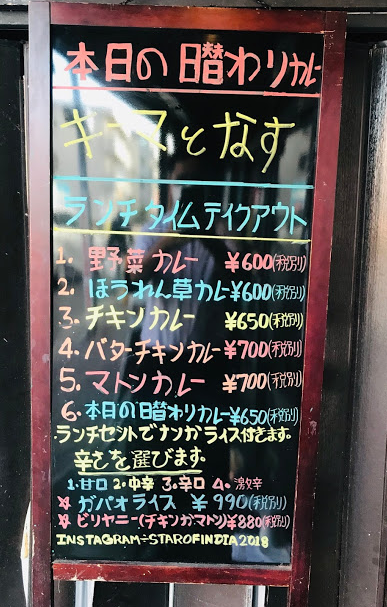 本日の日替わりカレー
キーマとなす
ランチタイムテイクアウト
1. 野菜カレー ¥600(税別)
2. ほうれん草カレー¥600(税別)
3. チキンカレー ¥650(税別)
4. バターチキンカレー¥700(税別)
5. マトンカレー ¥700(税別)
6. 本日の日替わりカレー¥650(税別)
ランチセットでナンかライス付きます。
辛さを選びます。
1.甘口 2.中辛 3.辛口 4.激辛
☆ガパオライス ¥990(税別)
☆ビリヤニー(チキンかマトン)¥880(税別)
INSTAGRAM÷STAROFINDIA2018